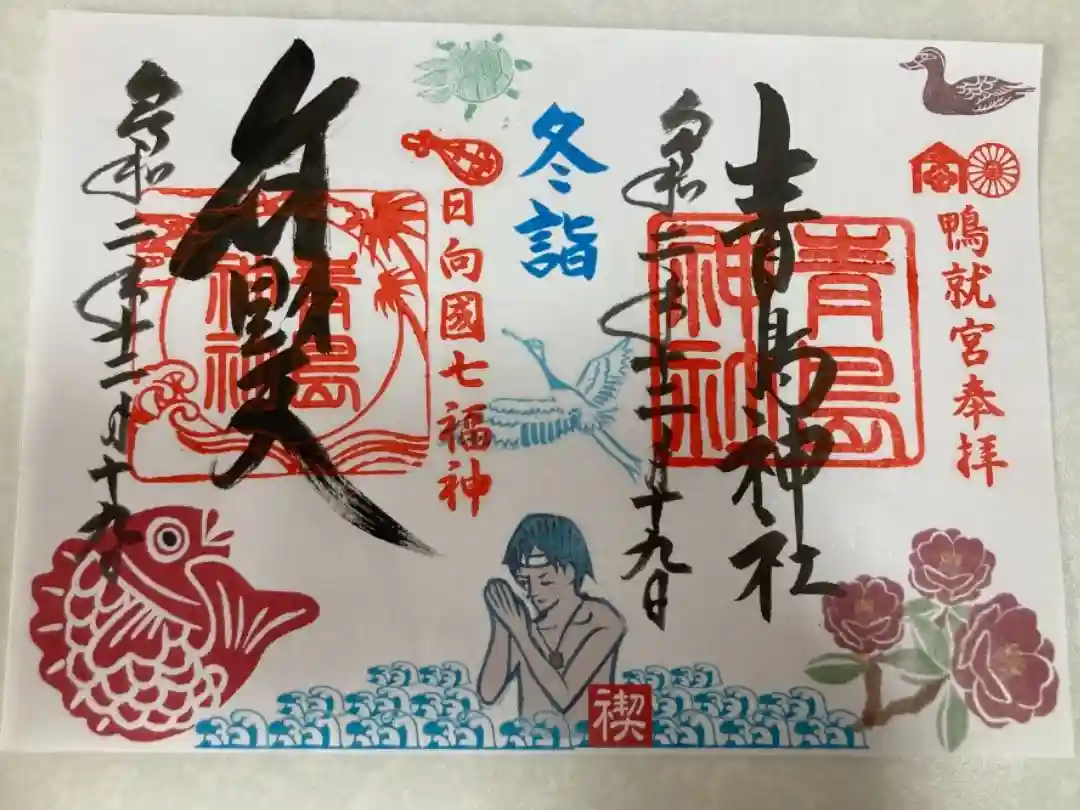 鴨就宮奉拝
青島神社
青島
神社
令和二年十二月十九日
冬詣
日向國七福神
弁財天
青島
神社
令和二年十二月十九日
禊